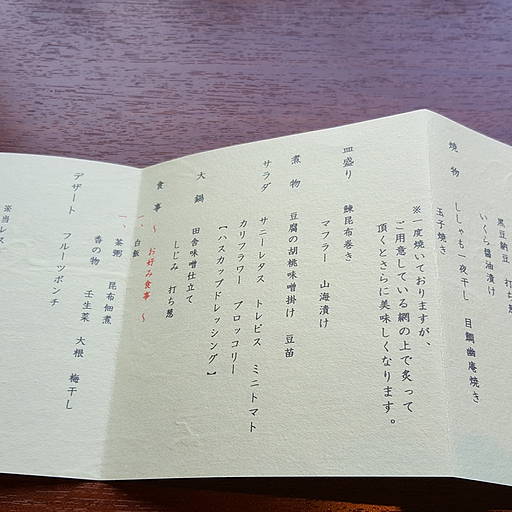 黒豆納豆 打ち
いくら醤油漬け
焼物
ししゃも一夜干し 目鯛幽庵焼き
玉子焼き
※一度焼いておりますが、
ご用意している網の上で炙って
頂くとさらに美味しくなります。
皿盛り
鰊昆布巻き
マフラー 山海漬け
煮物
豆腐の胡桃味噌掛け 豆苗
サラダ
サニーレタス トレビス ミニトマト
カリフラワー ブロッコリー
【ハスカップドレッシング】
大鍋
田舎味噌仕立て
しじみ 打ち葱
食事 ~ お好み食事 ~
一、白飯
一、茶粥
香の物 昆布佃煮
壬生菜 大根 梅干し
デザート
フルーツポンチ
※当レス